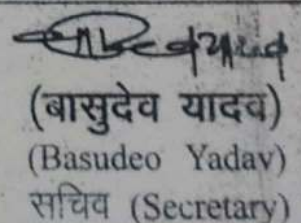 (बासुदेव यादव)
(Basudeo Yadav)
सचिव (Secretary)